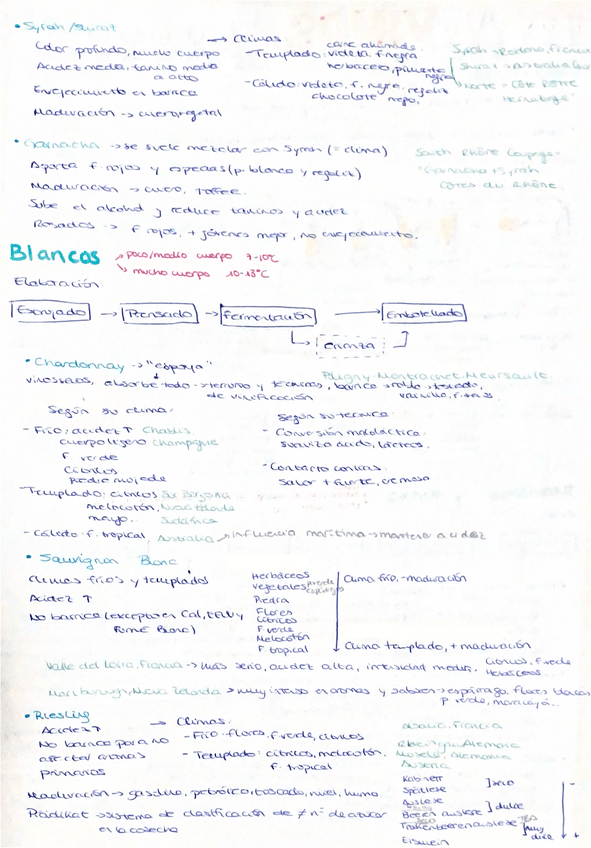 • Syrah / Shiraz
→ Climas
Color profundo, mucho cuerpo
Acidez media, tanino medio
a alto
Envejecimiento en barrica
Maduración → cuero, vegetal
carne ahumada
- Templado: violeta, f. negra
herbáceo, pimienta
negra
- Cálido: violeta, f. negra, regaliz
chocolate negro.
Syrah → Ródano, Francia
Shiraz → Australia
Norte - Côte Rôtie
Hermitage
• Garnacha → se suele mezclar con Syrah (= clima)
Aporta f. rojos y especias (p. blanca y regaliz)
Maduración → cuero, toffee.
Sube el alcohol y reduce taninos y acidez.
Rosados → f. rojos, + jóvenes mejor, no envejecimiento.
South Rhône
Garnacha + Syrah
Côtes du Rhône.
Blancos
poco/medio cuerpo 7-10°C
mucho cuerpo 10-13°C
Elaboración
Estrujado → Prensado → Fermentación → Embotellado
crianza
• Chardonnay → "esponja"
Puligny-Montrachet, Meursault
absorbe todo → terruño y técnicas, barrica → roble → tostado,
de vinificación
vainilla,
Según su clima:
- Frío: acidez ↑ Chablis
cuerpo ligero Champagne
f. verde
Cítricos
Piedra mojada
- Templado: cítricos Sur Borgoña
melocotón, Nueva Zelanda
Sudáfrica
- Cálido: f. tropical, Australia → influencia marítima → mantiene acidez
Según su técnica
- Conversión maloláctica
suaviza ácido, lácteos.
- Contacto con lías
Sabor + fuerte, cremoso
• Sauvignon Blanc
Climas fríos y templados
Acidez ↑
No barrica (excepto en Cal, EEUU y
Fumé Blanc)
Herbáceos
Vegetales
Piedra
Flores
Cítricos
F. verde
Melocotón
F. tropical
Clima frío, - maduración
Clima templado, + maduración
Valle del Loira, Francia → más serio, acidez alta, intensidad media. Cítricos, f. verde
Herbáceos...
Marlborough, Nueva Zelanda → muy intenso en aromas y sabores → espárrago, flores blancas
p verde, maracuyá..
• Riesling
→ Climas.
Acidez ↑
No barrica para no
afectar aromas
primarios
- Frío: flores, f. verde, cítricos
- Templado: cítricos, melocotón,
f. tropical
Alsacia, Francia
Rheingau, Alemania
Mosela, Alemania
Austria
Maduración → gasolina, petróleo, tostado, miel, humo
Prädikat → sistema de clasificación de ≠ n. de azúcar
en la cosecha
Kabinett
Spätlese
] seco
Auslese
Beerenauslese
] dulce
Trockenbeerenauslese
] muy
dulce
Eiswein
-
+